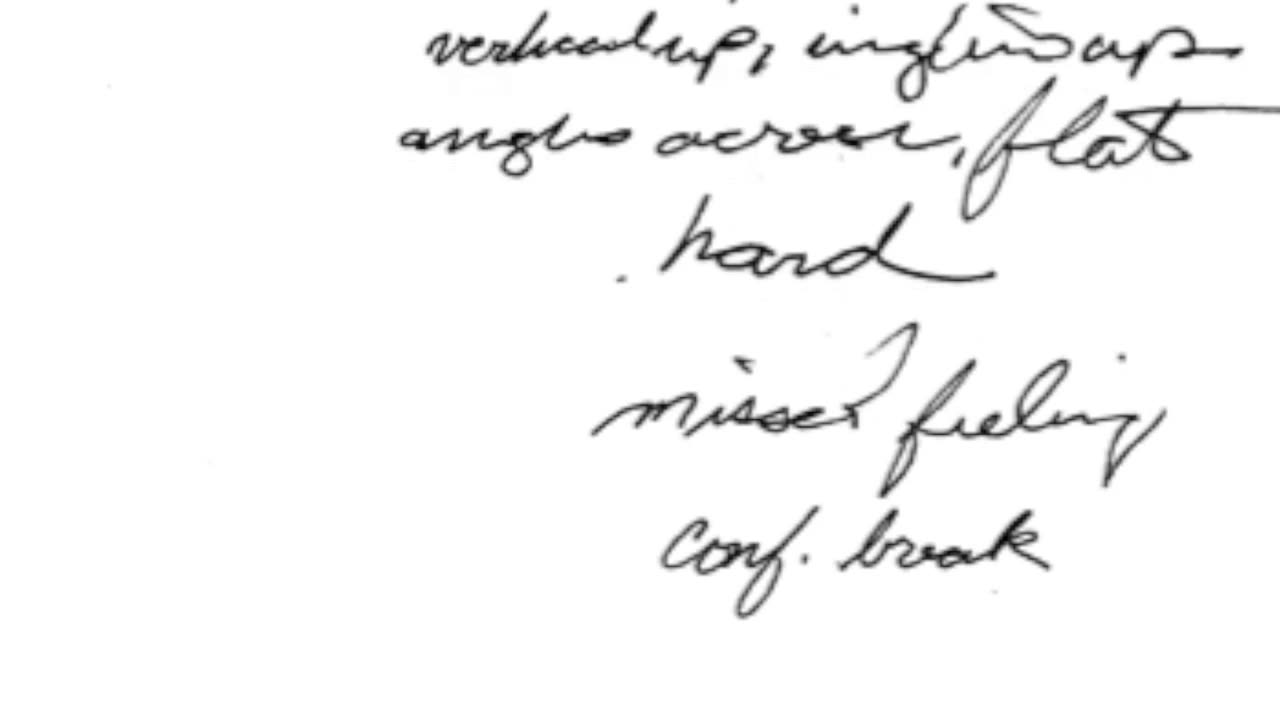 vertical up, up
angles across, flat
hard
missed feeling
conf. break